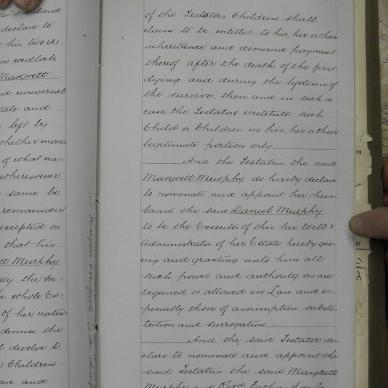 the said
declare to
his two (2)
wedlock
Margrett
universal
Estate and
left by
whether mova
of what na-
wheresoever
same be
remainder
excepted on
that his
Murphy
the
whole Es-
of her natu
demise the
devolve
Children
and
of the Testators Children shall
claim to be entitled to his, her or their
inheritance and demand payment
thereof after the death of the first
dying and during the lifetime of
the survivor, then and in such a
case the Testators institute such
Child or Children in his, her or their
legitimate portion only.
And the Testatrix the said
Margrett Murphy do hereby declare
to nominate and appoint her hus-
band the said Daniel Murphy
to be the Executor of this her Will &
Administrator of her Estate hereby giv-
ing and granting unto him all
such power and authority as are
required or allowed in Law and es-
pecially those of assumption, substi-
tution and surrogation.
And the said Testator de-
clare to nominate and appoint the
said Testatrix the said Margrett
Murphy